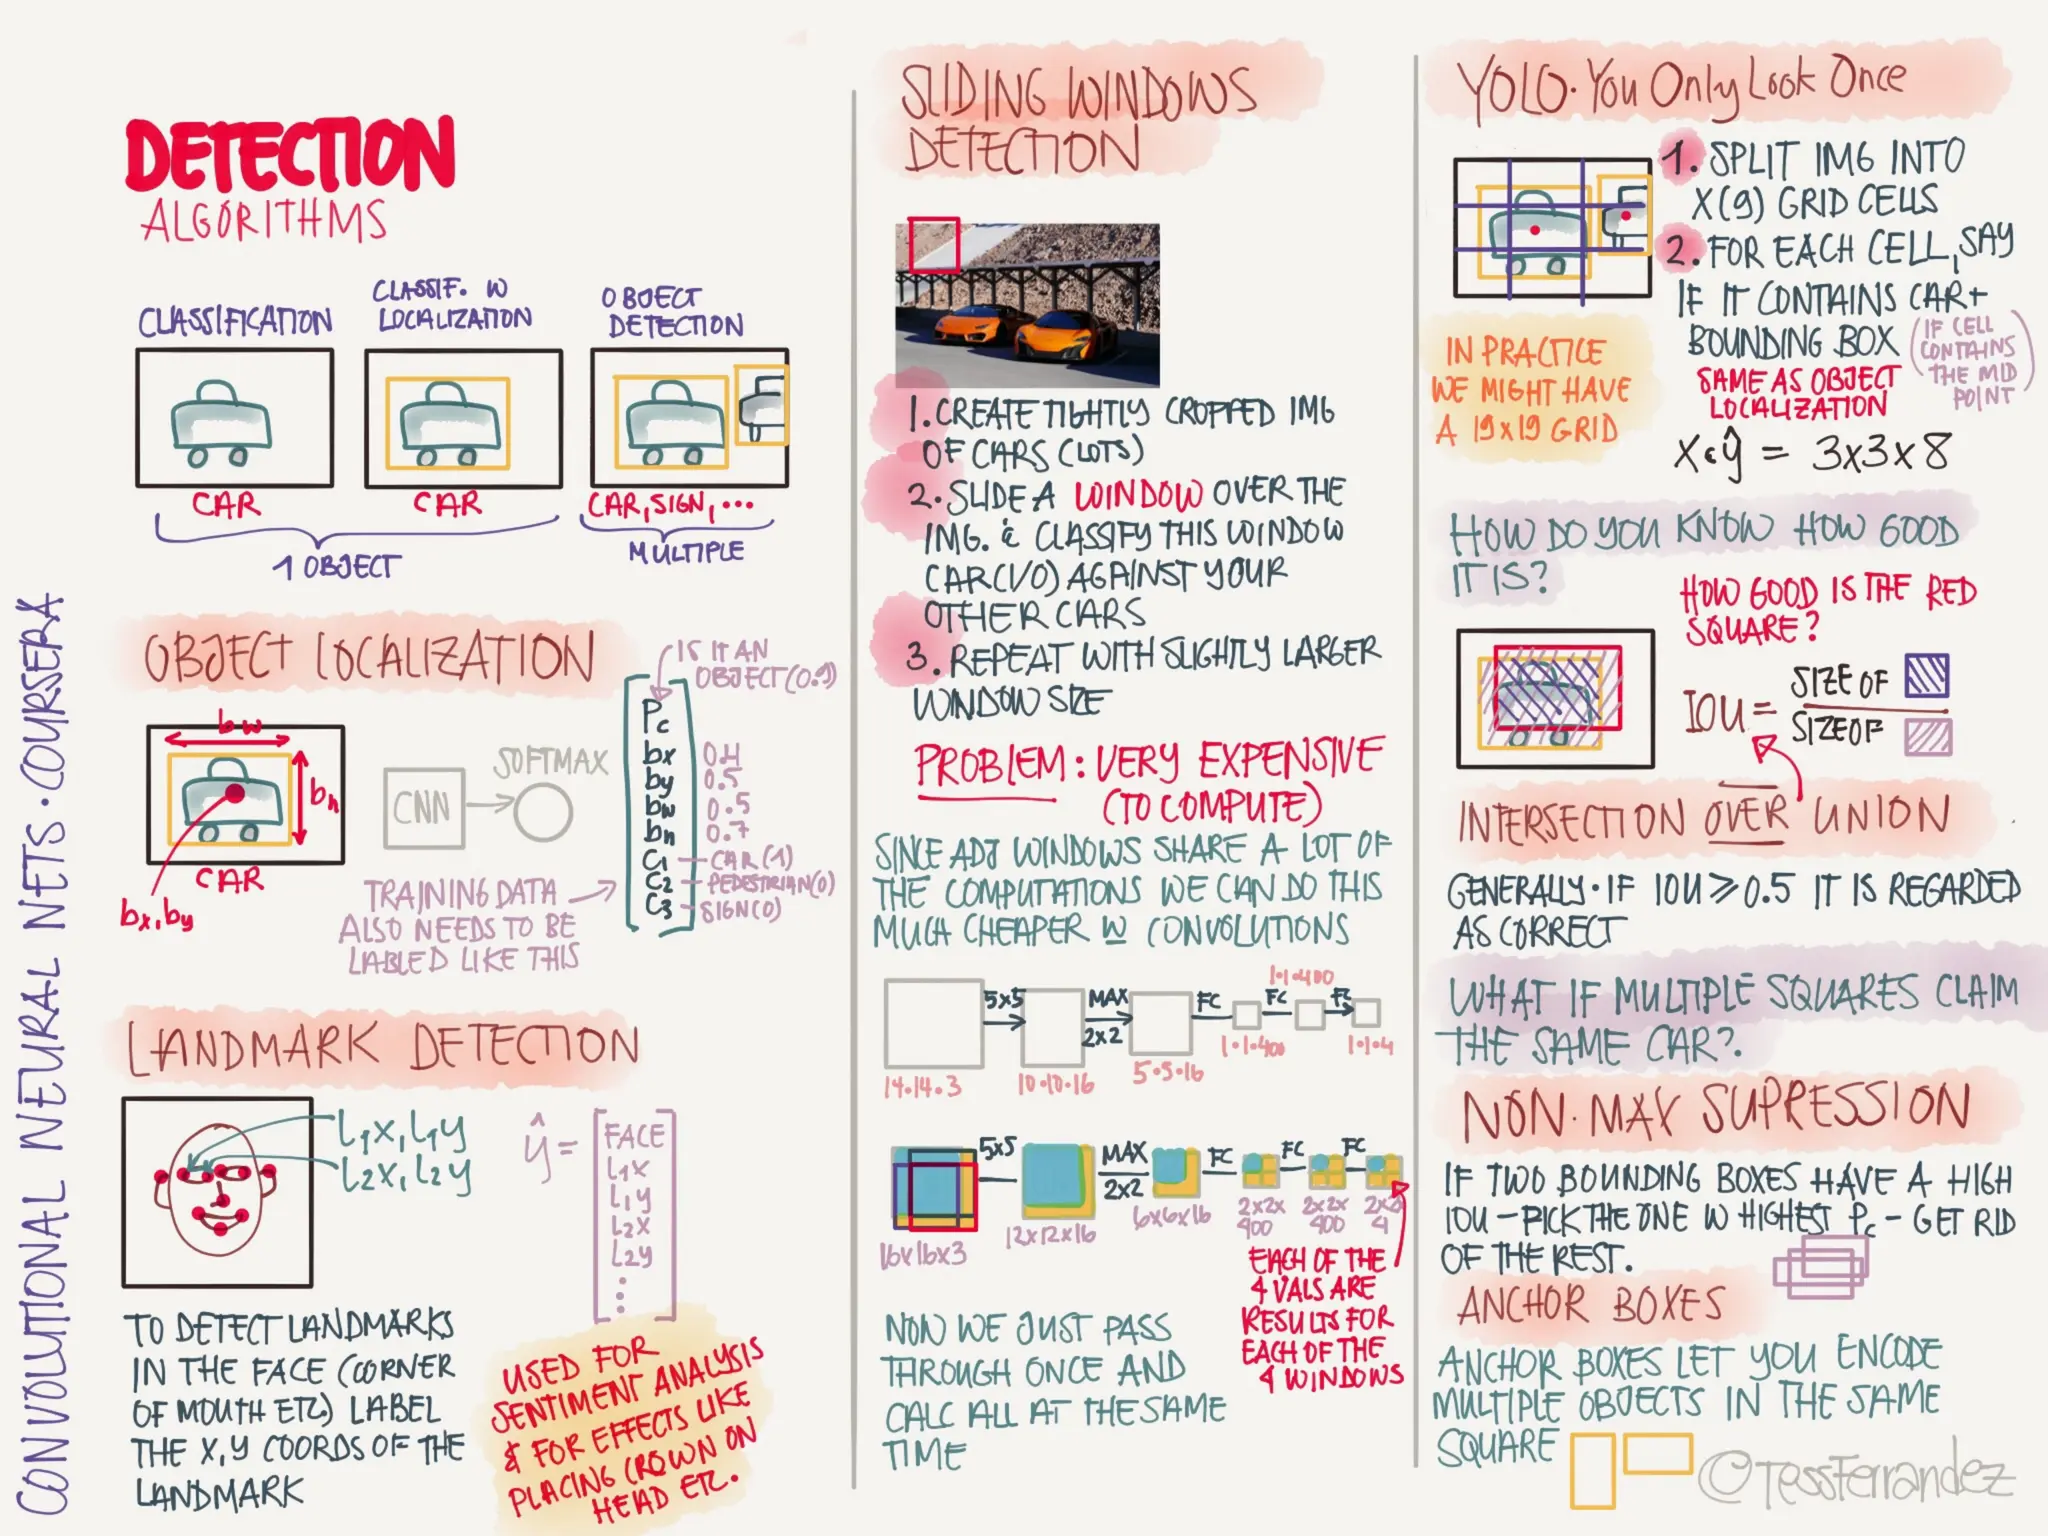 CONVOLUTIONAL NEURAL NETS · COURSERA
DETECTION
ALGORITHMS
CLASSIFICATION
CLASSIF. W
LOCALIZATION
OBJECT
DETECTION
CAR
CAR
CAR, SIGN, ...
1 OBJECT
MULTIPLE
OBJECT LOCALIZATION
bw
bh
CAR
bx, by
CNN
SOFTMAX
IS IT AN
OBJECT (0.9)
Pc
bx 0.4
by 0.5
bw 0.5
bh 0.7
C1 - CAR (1)
C2 - PEDESTRIAN (0)
C3 - SIGN (0)
TRAINING DATA
ALSO NEEDS TO BE
LABLED LIKE THIS
LANDMARK DETECTION
L1X, L1Y
L2X, L2Y
ŷ =
FACE
L1X
L1Y
L2X
L2Y
⋮
TO DETECT LANDMARKS
IN THE FACE (CORNER
OF MOUTH ETC) LABEL
THE X,Y COORDS OF THE
LANDMARK
USED FOR
SENTIMENT ANALYSIS
& FOR EFFECTS LIKE
PLACING CROWN ON
HEAD ETC.
SLIDING WINDOWS
DETECTION
1. CREATE TIGHTLY CROPPED IMG
OF CARS (LOTS)
2. SLIDE A WINDOW OVER THE
IMG. & CLASSIFY THIS WINDOW
CAR (1/0) AGAINST YOUR
OTHER CARS
3. REPEAT WITH SLIGHTLY LARGER
WINDOW SIZE
PROBLEM: VERY EXPENSIVE
(TO COMPUTE)
SINCE ADJ WINDOWS SHARE A LOT OF
THE COMPUTATIONS WE CAN DO THIS
MUCH CHEAPER W CONVOLUTIONS
5x5
MAX
2x2
FC
FC
FC
14·14·3
10·10·16
5·5·16
1·1·400
1·1·400
1·1·4
5x5
MAX
2x2
FC
FC
FC
16x16x3
12x12x16
6x6x16
2x2x
400
2x2x
400
2x2x
4
EACH OF THE
4 VALS ARE
RESULTS FOR
EACH OF THE
4 WINDOWS
NOW WE JUST PASS
THROUGH ONCE AND
CALC ALL AT THE SAME
TIME
YOLO · You Only Look Once
1. SPLIT IMG INTO
X(9) GRID CELLS
2. FOR EACH CELL, SAY
IF IT CONTAINS CAR +
BOUNDING BOX
(IF CELL
CONTAINS
THE MID
POINT)
SAME AS OBJECT
LOCALIZATION
IN PRACTICE
WE MIGHT HAVE
A 19x19 GRID
X & ŷ = 3x3x8
HOW DO YOU KNOW HOW GOOD
IT IS?
HOW GOOD IS THE RED
SQUARE?
IOU =
SIZE OF
SIZE OF
INTERSECTION OVER UNION
GENERALLY · IF IOU ⩾ 0.5 IT IS REGARDED
AS CORRECT
WHAT IF MULTIPLE SQUARES CLAIM
THE SAME CAR?
NON·MAX SUPRESSION
IF TWO BOUNDING BOXES HAVE A HIGH
IOU - PICK THE ONE W HIGHEST Pc - GET RID
OF THE REST.
ANCHOR BOXES
ANCHOR BOXES LET YOU ENCODE
MULTIPLE OBJECTS IN THE SAME
SQUARE
©TessFerrandez